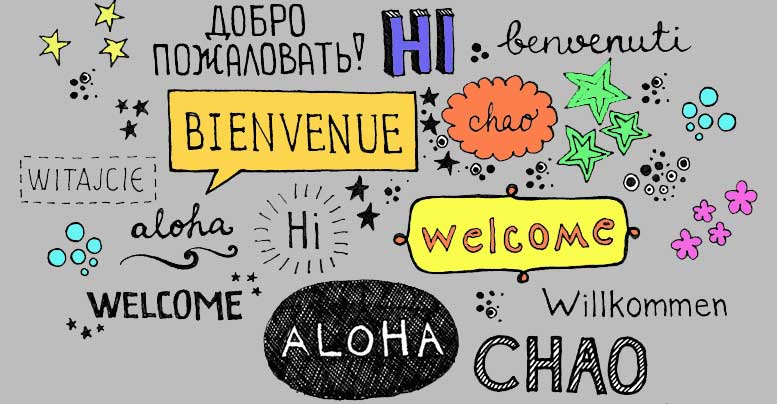 ДОБРО
ПОЖАЛОВАТЬ!
HI
benvenuti
BIENVENUE
chao
WITAJCIE
aloha
Hi
welcome
WELCOME
ALOHA
Willkommen
CHAO